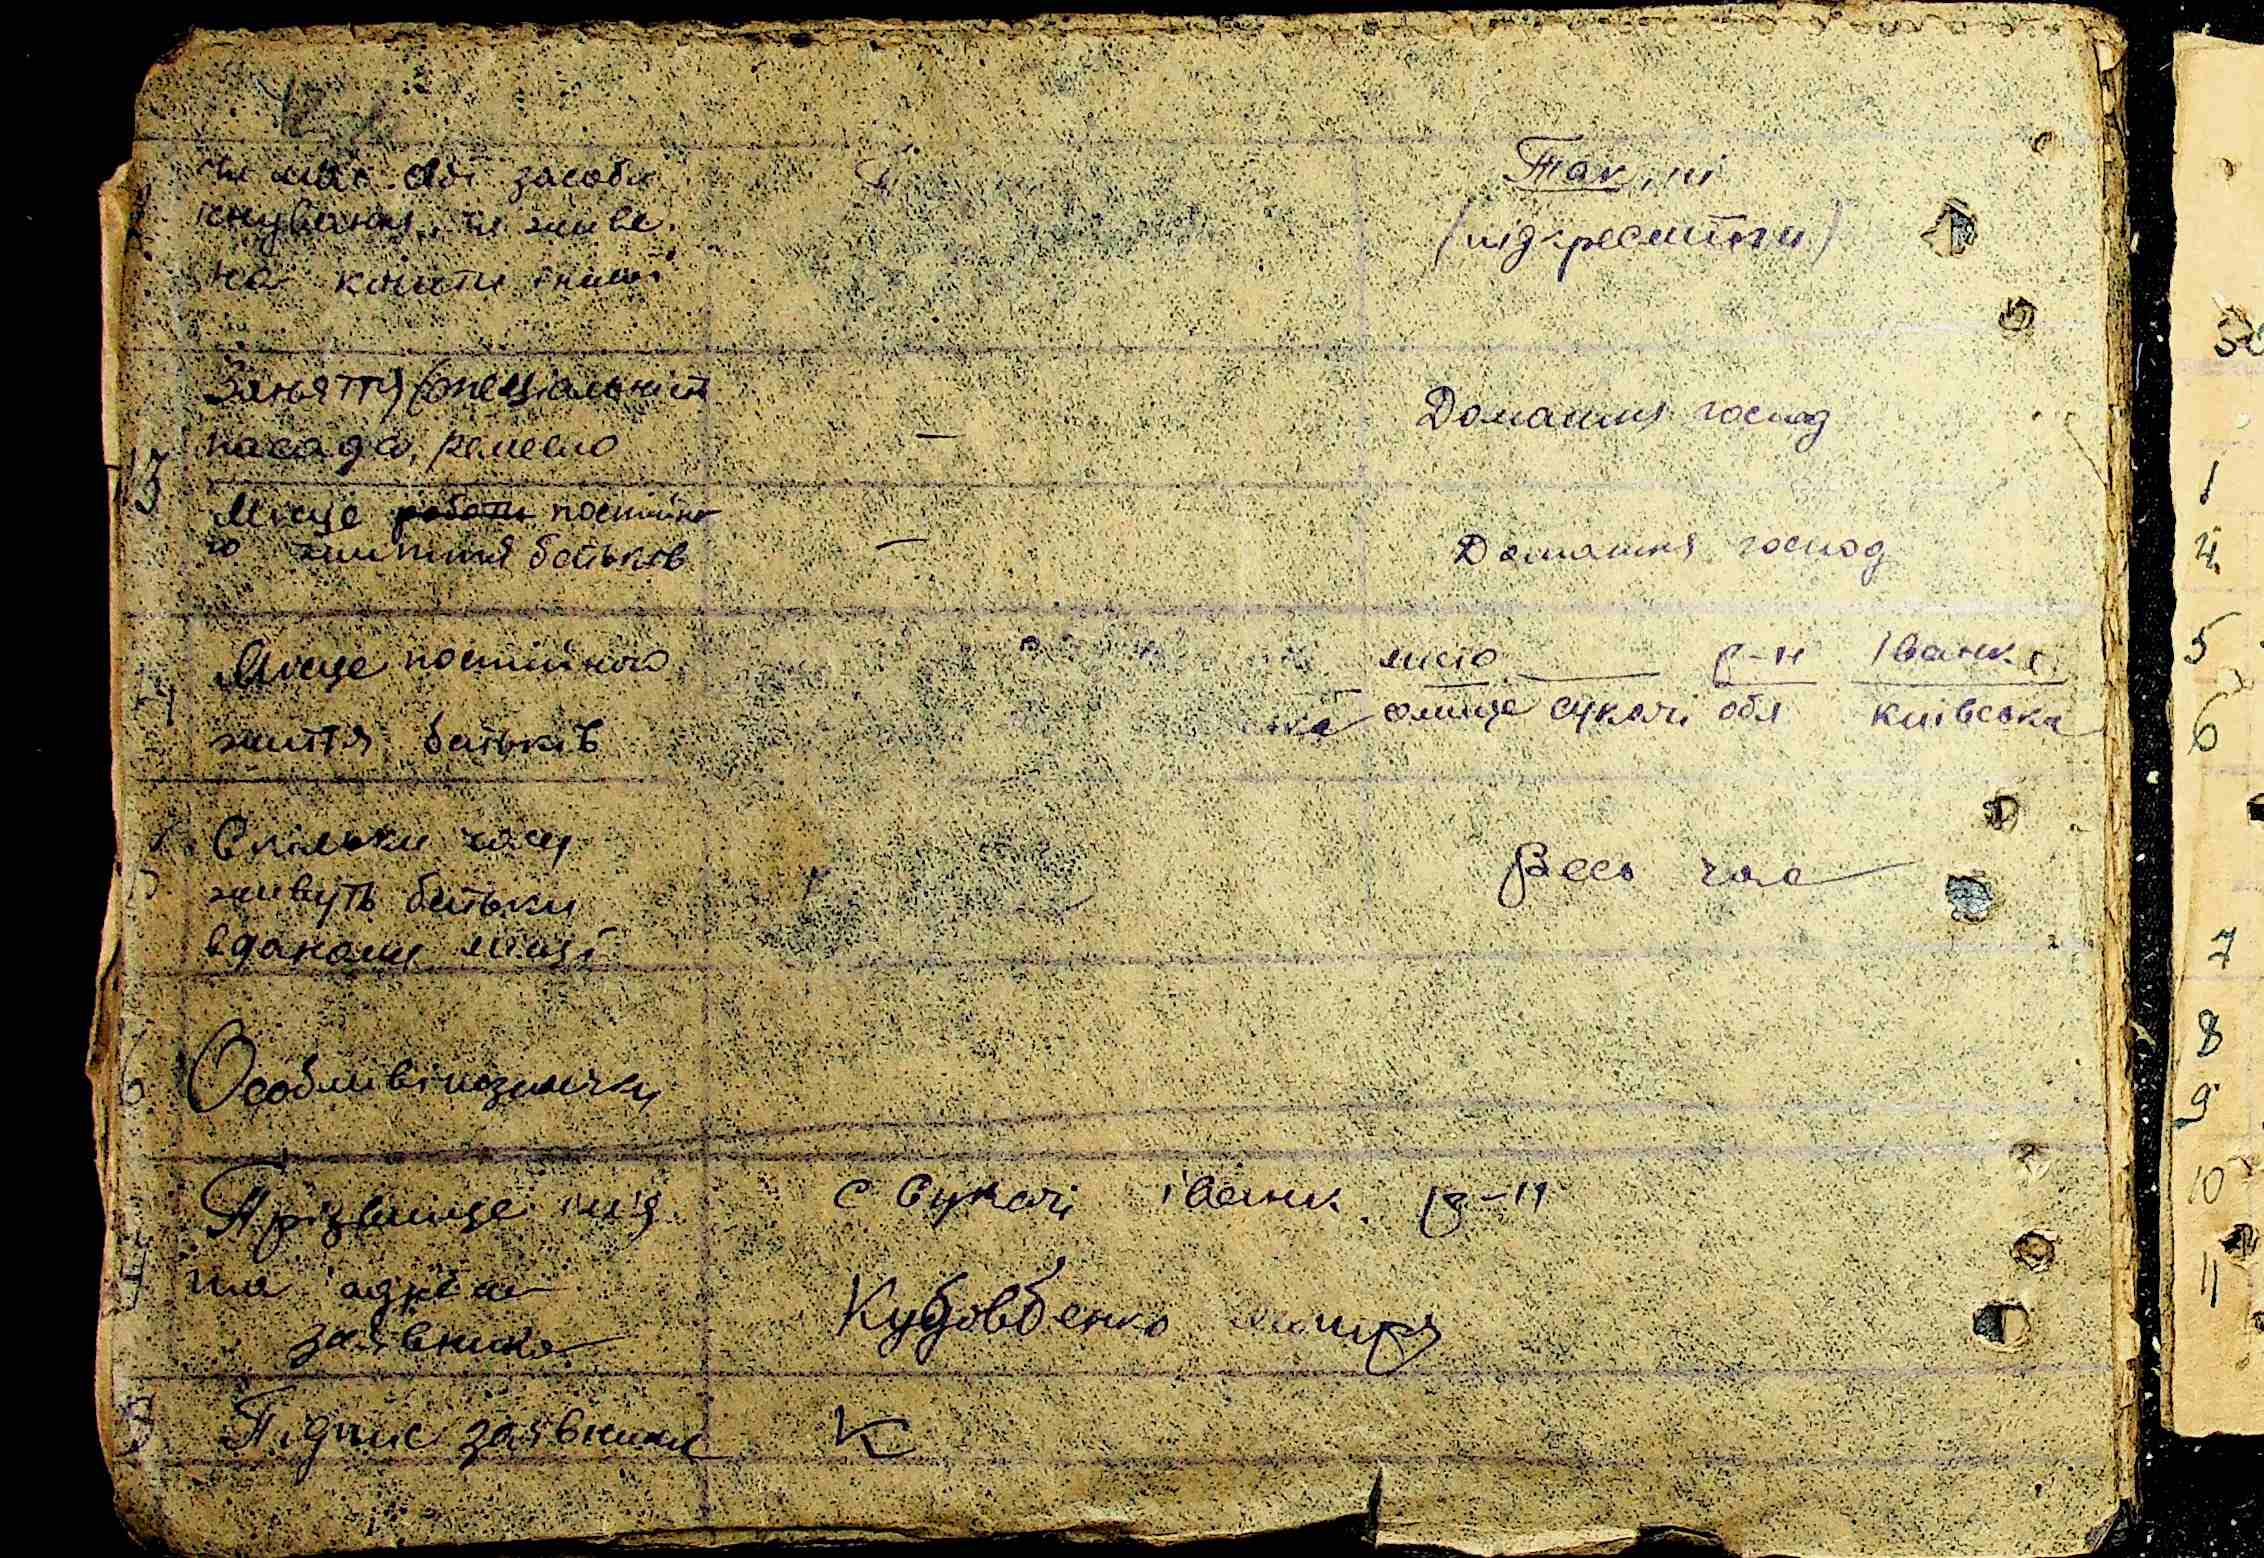 Чи має свої засоби
існування, чи живе
на кошти інших
Так, ні
(підкреслити)
Заняття (спеціальніст
посада, ремесло
—
Домашня господ
Місце роботи постійно
го життя батьків
—
Домашня господ
Місце постійного
життя батьків
місто — р-н Іванк
селище Сукачі обл Київська
Скільки часу
живуть батьки
в даному місці
Весь час
Особливі позначки
Прізвище ім'я
та адреса
заявника
с Сукачі Іванк. р-н
Підпис заявника
К
1
4
5
6
7
8
9
10
11